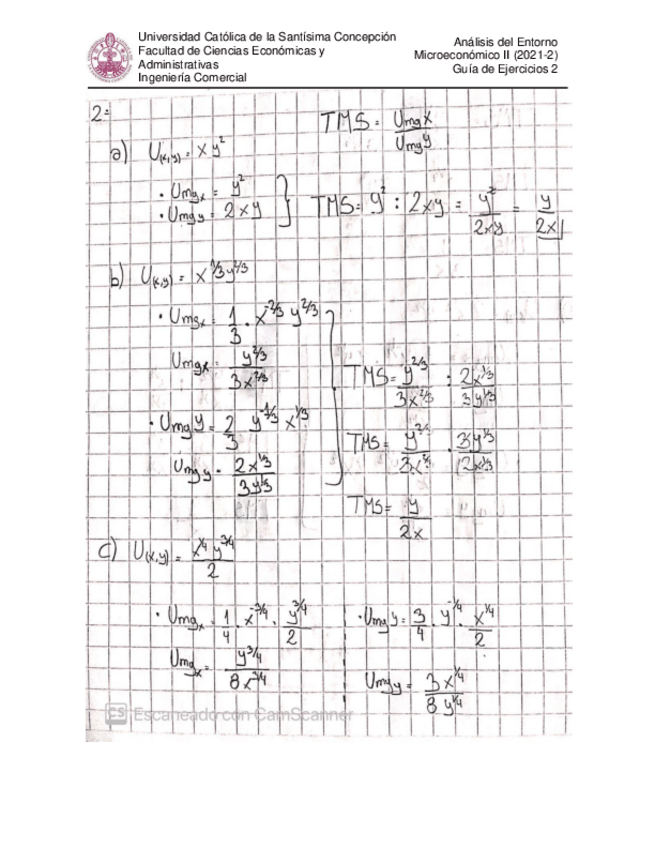 Universidad Católica de la Santísima Concepción
Facultad de Ciencias Económicas y
Administrativas
Ingeniería Comercial
Análisis del Entorno
Microeconómico II (2021-2)
Guía de Ejercicios 2
2=
TMS = Umgx / Umgy
a) U(x,y) = x y²
• Umgx = y²
• Umgy = 2xy
TMS = y² : 2xy = y² / 2xy = y / 2x
b) U(x,y) = x^1/3 y^2/3
• Umgx = 1/3 · x^-2/3 y^2/3
Umgx = y^2/3 / 3x^2/3
• Umgy = 2/3 y^-1/3 x^1/3
Umgy = 2x^1/3 / 3y^1/3
TMS = y^2/3 / 3x^2/3 : 2x^1/3 / 3y^1/3
TMS = y^2/3 / 3x^2/3 · 3y^1/3 / 2x^1/3
TMS = y / 2x
c) U(x,y) = x^1/4 y^3/4 / 2
• Umgx = 1/4 · x^-3/4 · y^3/4 / 2
Umgx = y^3/4 / 8x^3/4
• Umgy = 3/4 · y^-1/4 · x^1/4 / 2
Umgy = 3x^1/4 / 8y^1/4
CS Escaneado con CamScanner